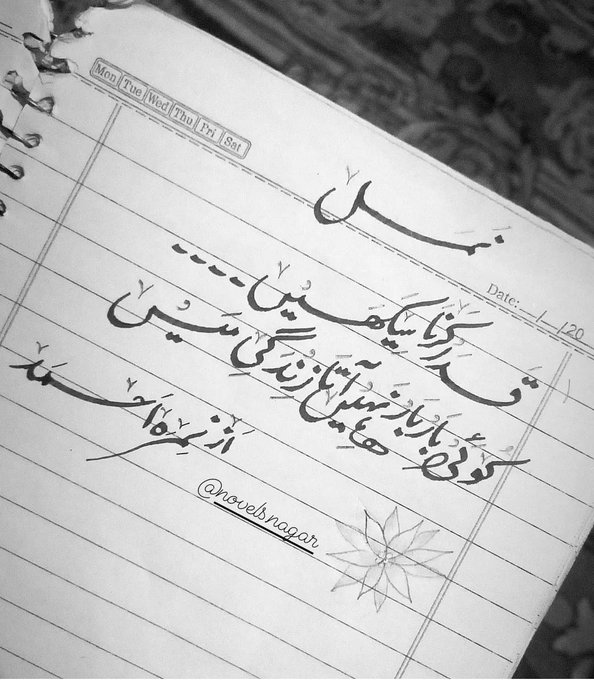 Mon Tue Wed Thu Fri Sat
نمل
Date: / /20
قدر کرنا سیکھیں ----
کوئی بار بار نہیں آتا زندگی میں
از نمرہ احمد
@novelsnagar